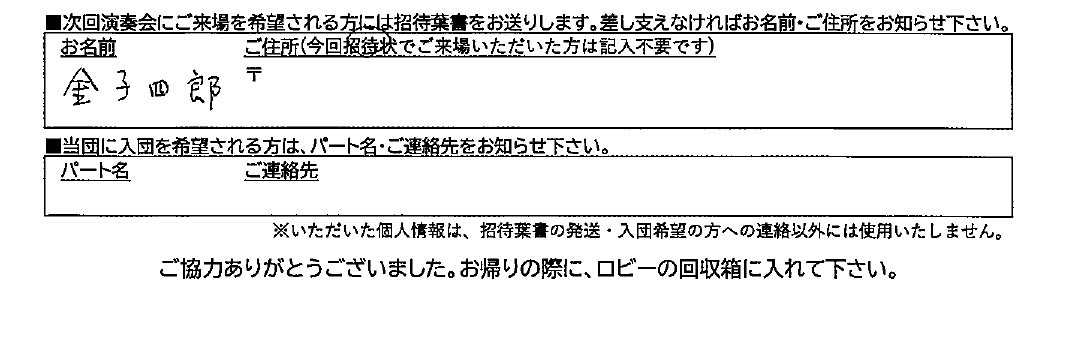 ■次回演奏会にご来場を希望される方には招待葉書をお送りします。差し支えなければお名前・ご住所をお知らせ下さい。
お名前 ご住所(今回招待状でご来場いただいた方は記入不要です)
〒
金子四郎
■当団に入団を希望される方は、パート名・ご連絡先をお知らせ下さい。
パート名 ご連絡先
※いただいた個人情報は、招待葉書の発送・入団希望の方への連絡以外には使用いたしません。
ご協力ありがとうございました。お帰りの際に、ロビーの回収箱に入れて下さい。